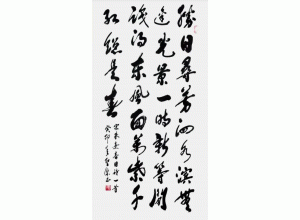 勝日尋芳泗水濱無
邊光景一時新等閑
識得東風面萬紫千
紅總是春
宋朱熹春日詩一首
癸卯年